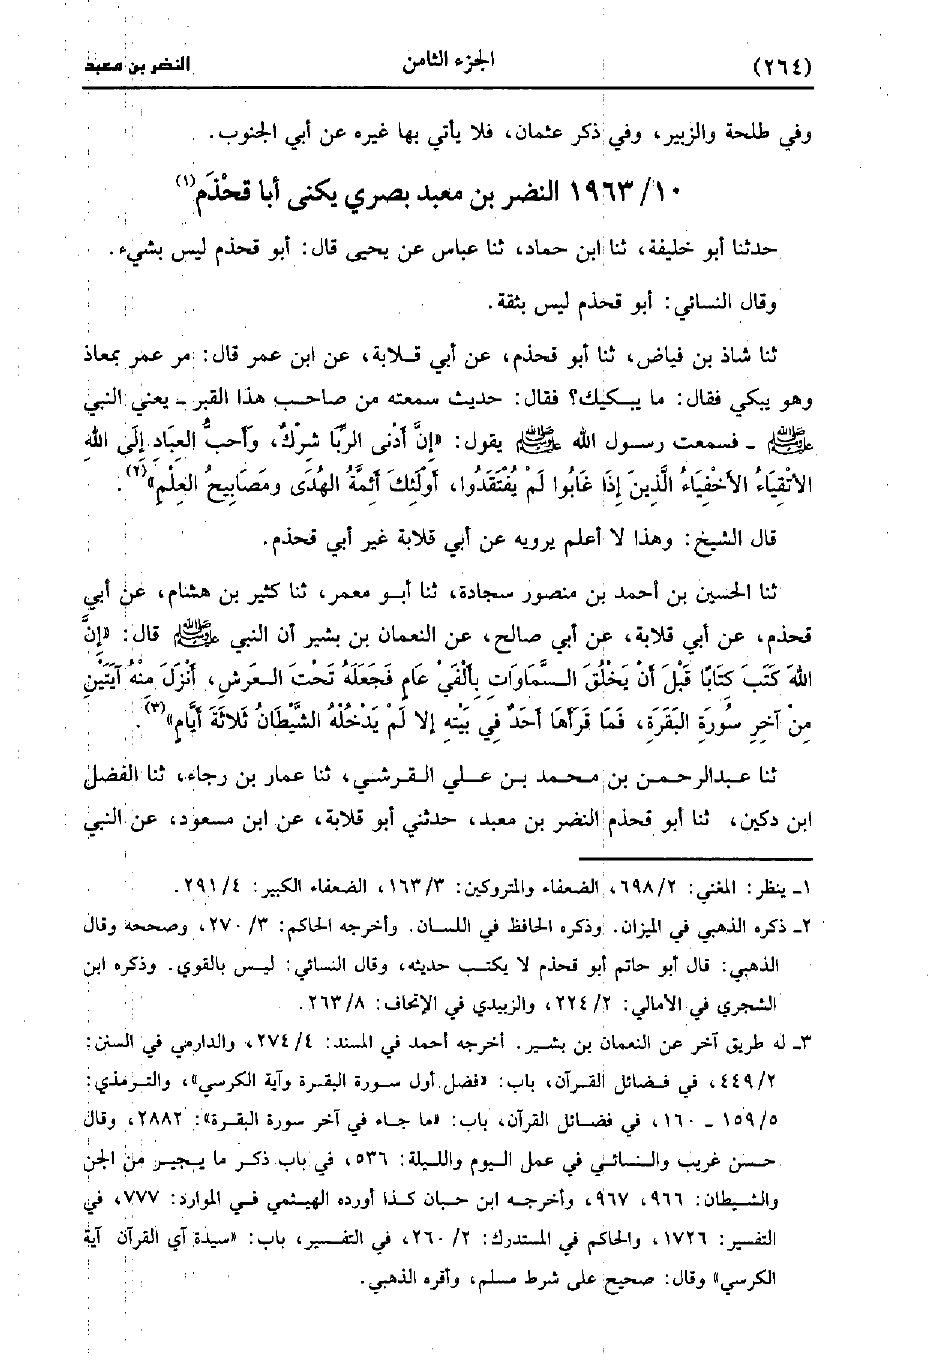 (٢٦٤) الجزء الثامن النضر بن معبد
وفي طلحة والزبير، وفي ذكر عثمان، فلا يأتي بها غيره عن أبي الجنوب.
١٩٦٣/١٠ النضر بن معبد بصري يكنى أبا قحْذَم(١)
حدثنا أبو خليفة، ثنا ابن حماد، ثنا عباس عن يحيى قال: أبو قحذم ليس بشيء.
وقال النسائي: أبو قحذم ليس بثقة.
ثنا شاذ بن فياض، ثنا أبو قحذم، عن أبي قلابة، عن ابن عمر قال: مر عمر بمعاذ
وهو يبكي فقال: ما يبكيك؟ فقال: حديث سمعته من صاحب هذا القبر ـ يعني النبي
ﷺ ـ فسمعت رسول الله ﷺ يقول: «إنَّ أَدْنى الرِّبَا شِرْكٌ، وأَحبُّ العِبَادِ إِلَى اللهِ
الأتْقِيَاءُ الأخْفِيَاءُ الَّذِينَ إِذَا غَابُوا لَمْ يُفْتَقَدُوا، أُولَئِكَ أَئِمَّةُ الهُدَى ومَصَابِيحُ العِلْمِ»(٢).
قال الشيخ: وهذا لا أعلم يرويه عن أبي قلابة غير أبي قحذم.
ثنا الحسين بن أحمد بن منصور سجادة، ثنا أبو معمر، ثنا كثير بن هشام، عن أبي
قحذم، عن أبي قلابة، عن أبي صالح، عن النعمان بن بشير أن النبي ﷺ قال: «إنَّ
اللهَ كَتَبَ كِتَابًا قَبْلَ أَنْ يَخْلُقَ السَّمَاوَاتِ بِأَلْفَيْ عَامٍ فَجَعَلَهُ تَحْتَ العَرْشِ، أَنْزَلَ مِنْهُ آيَتَيْنِ
مِنْ آخِرِ سُورَةِ البَقَرَةِ، فَمَا قَرَأَهَا أَحَدٌ فِي بَيْتِهِ إلا لَمْ يَدْخُلْهُ الشَّيْطَانُ ثَلاثَةَ أَيَّامٍ»(٣).
ثنا عبدالرحمن بن محمد بن علي القرشي، ثنا عمار بن رجاء، ثنا الفضل
ابن دكين، ثنا أبو قحذم النضر بن معبد، حدثني أبو قلابة، عن ابن مسعود، عن النبي
١ـ ينظر: المغني: ٦٩٨/٢، الضعفاء والمتروكين: ١٦٣/٣، الضعفاء الكبير: ٢٩١/٤.
٢ـ ذكره الذهبي في الميزان. وذكره الحافظ في اللسان. وأخرجه الحاكم: ٢٧٠/٣، وصححه وقال
الذهبي: قال أبو حاتم أبو قحذم لا يكتب حديثه، وقال النسائي: ليس بالقوي. وذكره ابن
الشجري في الأمالي: ٢٢٤/٢، والزبيدي في الإتحاف: ٢٦٣/٨.
٣ـ له طريق آخر عن النعمان بن بشير. أخرجه أحمد في المسند: ٢٧٤/٤، والدارمي في السنن:
٤٤٩/٢، في فضائل القرآن، باب: «فضل أول سورة البقرة وآية الكرسي»، والترمذي:
١٥٩/٥ ـ ١٦٠، في فضائل القرآن، باب: «ما جاء في آخر سورة البقرة»: ٢٨٨٢، وقال
حسن غريب والنسائي في عمل اليوم والليلة: ٥٣٦، في باب ذكر ما يجير من الجن
والشيطان: ٩٦٦، ٩٦٧، وأخرجه ابن حبان كذا أورده الهيثمي في الموارد: ٧٧٧، في
التفسير: ١٧٢٦، والحاكم في المستدرك: ٢٦٠/٢، في التفسير، باب: «سيدة آي القرآن آية
الكرسي» وقال: صحيح على شرط مسلم، وأقره الذهبي.